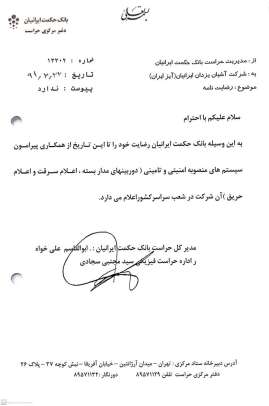 بسمه تعالی
بانک حکمت ایرانیان
دفتر مرکزی حراست
از : مدیریت حراست بانک حکمت ایرانیان
شماره : ۱۳۳۰۲
به : شرکت آشیان یزدان ایرانیان(آیز ایران)
تاریخ : ۹۱,۷,۲۲
موضوع : رضایت نامه
پیوست : ندارد
سلام علیکم با احترام
به این وسیله بانک حکمت ایرانیان رضایت خود را تا این تاریخ از همکاری پیرامون
سیستم های منصوبه امنیتی و تامینی ( دوربینهای مدار بسته ، اعلام سرقت و اعلام
حریق )آن شرکت در شعب سراسرکشوراعلام می دارد.
مدیر کل حراست بانک حکمت ایرانیان : . ابوالقاسم علی خواه
اداره حراست فیزیکی سید مجتبی سجادی
آدرس دبیرخانه ستاد مرکزی : تهران - میدان آرژانتین - خیابان آفریقا - نبش کوچه ۳۷ - پلاک ۲۶
دفتر مرکزی حراست تلفن ۸۹۵۷۱۱۲۹ دورنگار: ۸۹۵۷۱۱۳۲